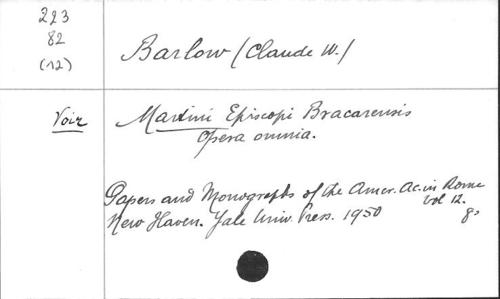 223
82
(12)
Barlow (Claude W.)
Voir
Martini Episcopi Bracarensis
Opera omnia.
Papers and Monographs of the Amer. Ac. in Rome
vol 12.
New Haven. Yale Univ. Press. 1950
8º